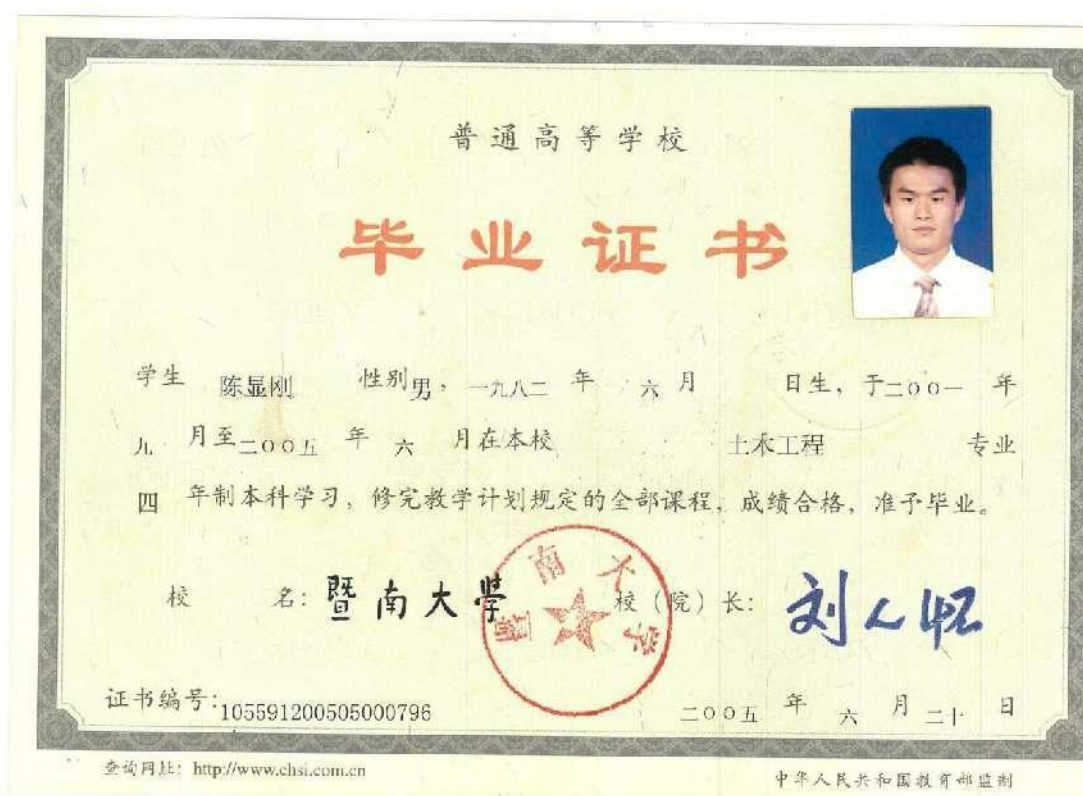 普通高等学校
毕业证书
学生 陈显刚 性别男，一九八二 年 六 月 日生，于二00一 年
九 月至二00五 年 六 月在本校 土木工程 专业
四 年制本科学习，修完教学计划规定的全部课程，成绩合格，准予毕业。
校 名：暨南大学 校（院）长：刘人怀
暨南大学
证书编号：105591200505000796 二00五 年 六 月 二十 日
查询网址：http://www.chsi.com.cn 中华人民共和国教育部监制